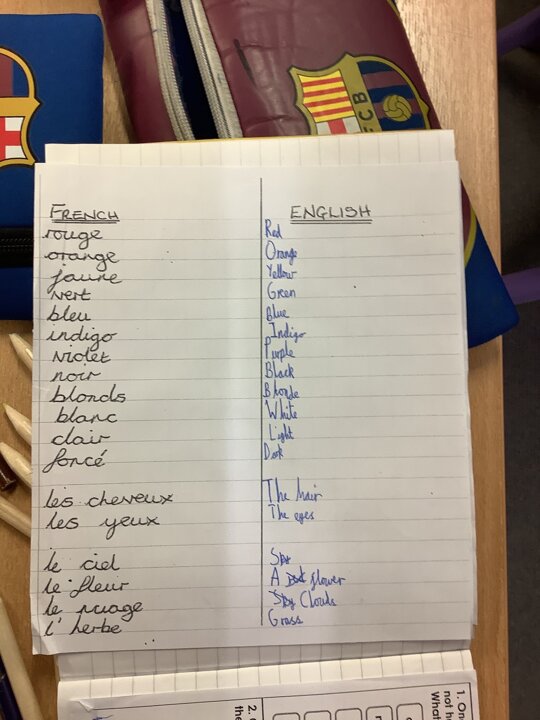 FCB
FRENCH ENGLISH
rouge Red
orange Orange
jaune Yellow
vert Green
bleu Blue
indigo Indigo
violet Purple
noir Black
blonds Blonde
blanc White
clair Light
foncé Dark
les cheveux The hair
les yeux The eyes
le ciel
le fleur A flower
le nuage Clouds
l'herbe Grass
1. On
not h
What
2.
the